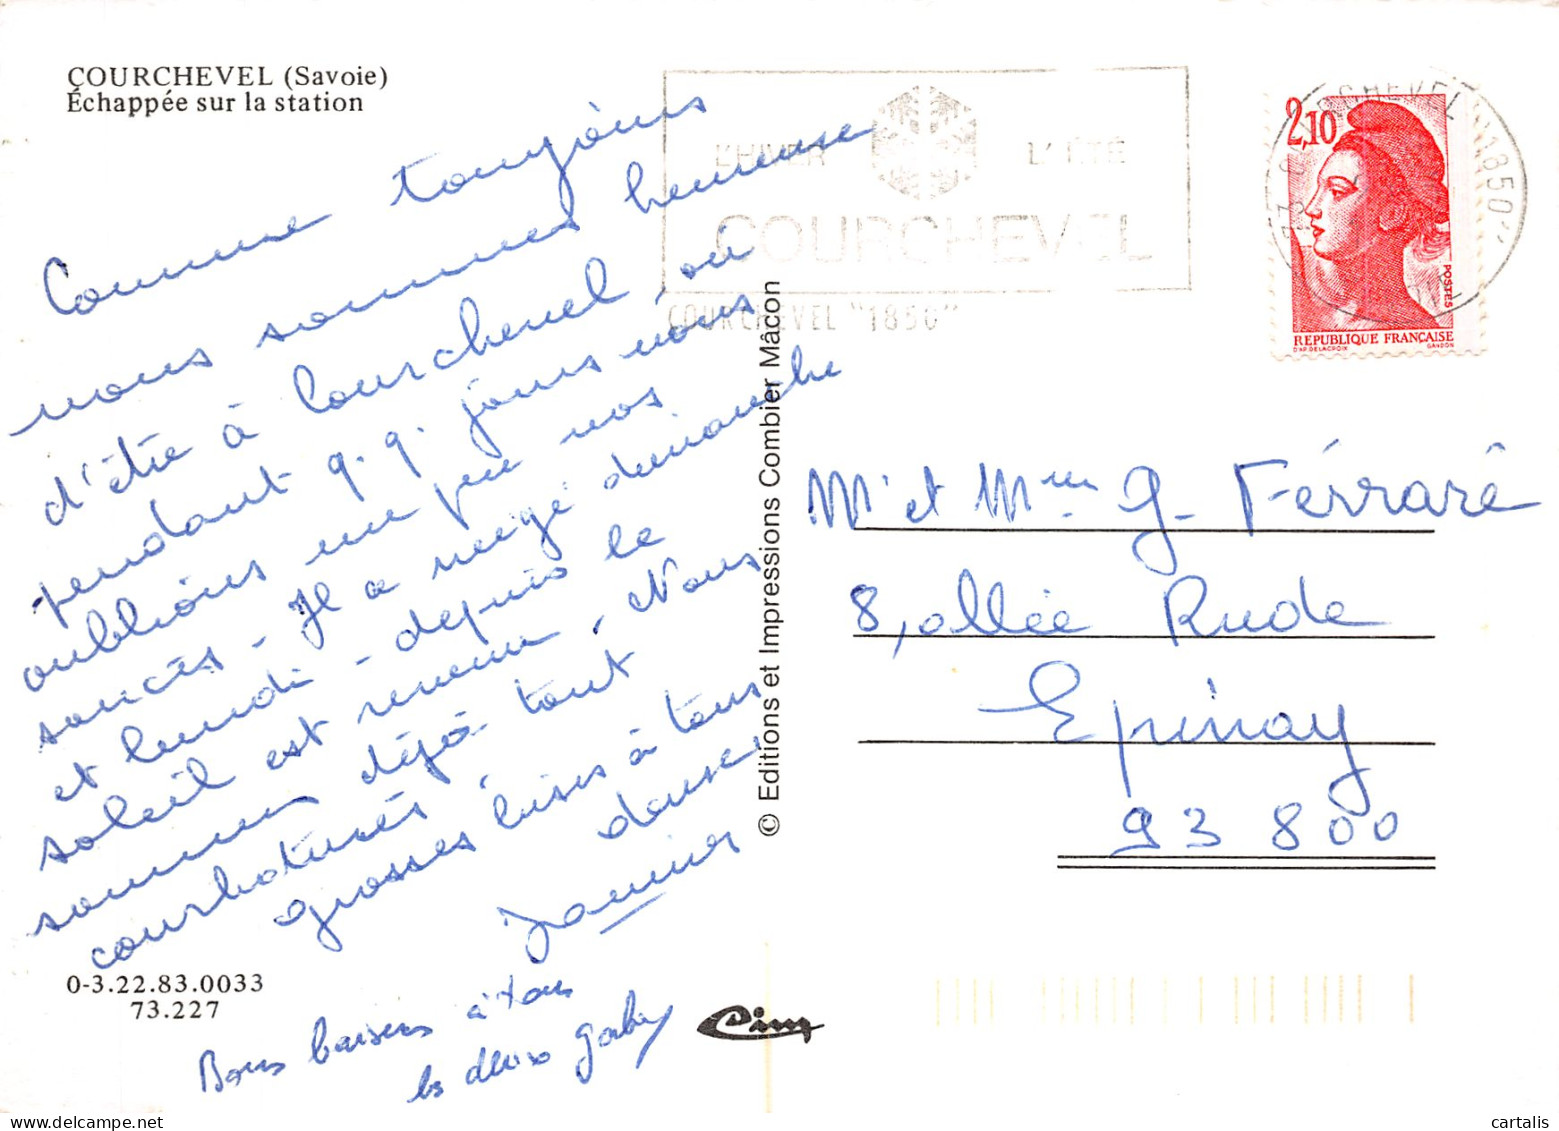 COURCHEVEL (Savoie)
Échappée sur la station
Comme toujours
nous sommes heureuse
d'être à Courchevel, où
pendant q.q. jours nous
oublions un peu nos
soucis - Il a neigé dimanche
et lundi - depuis le
soleil est revenu, Nous
sommes déjà tout
courbaturés,
grosses bises à tous
deux,
Janine
Bons baisers à tous
les deux Gaby
0-3.22.83.0033
73.227
© Editions et Impressions Combier Mâcon
Cim
L'HIVER L'ÉTÉ
COURCHEVEL
COURCHEVEL "1850"
73 COURCHEVEL "1850"
2,10
POSTES
REPUBLIQUE FRANÇAISE
D'AP. DELACROIX GANDON
Mr et Mme G. Férraré
8, allée Rude
Epinay
93 800
cartalis